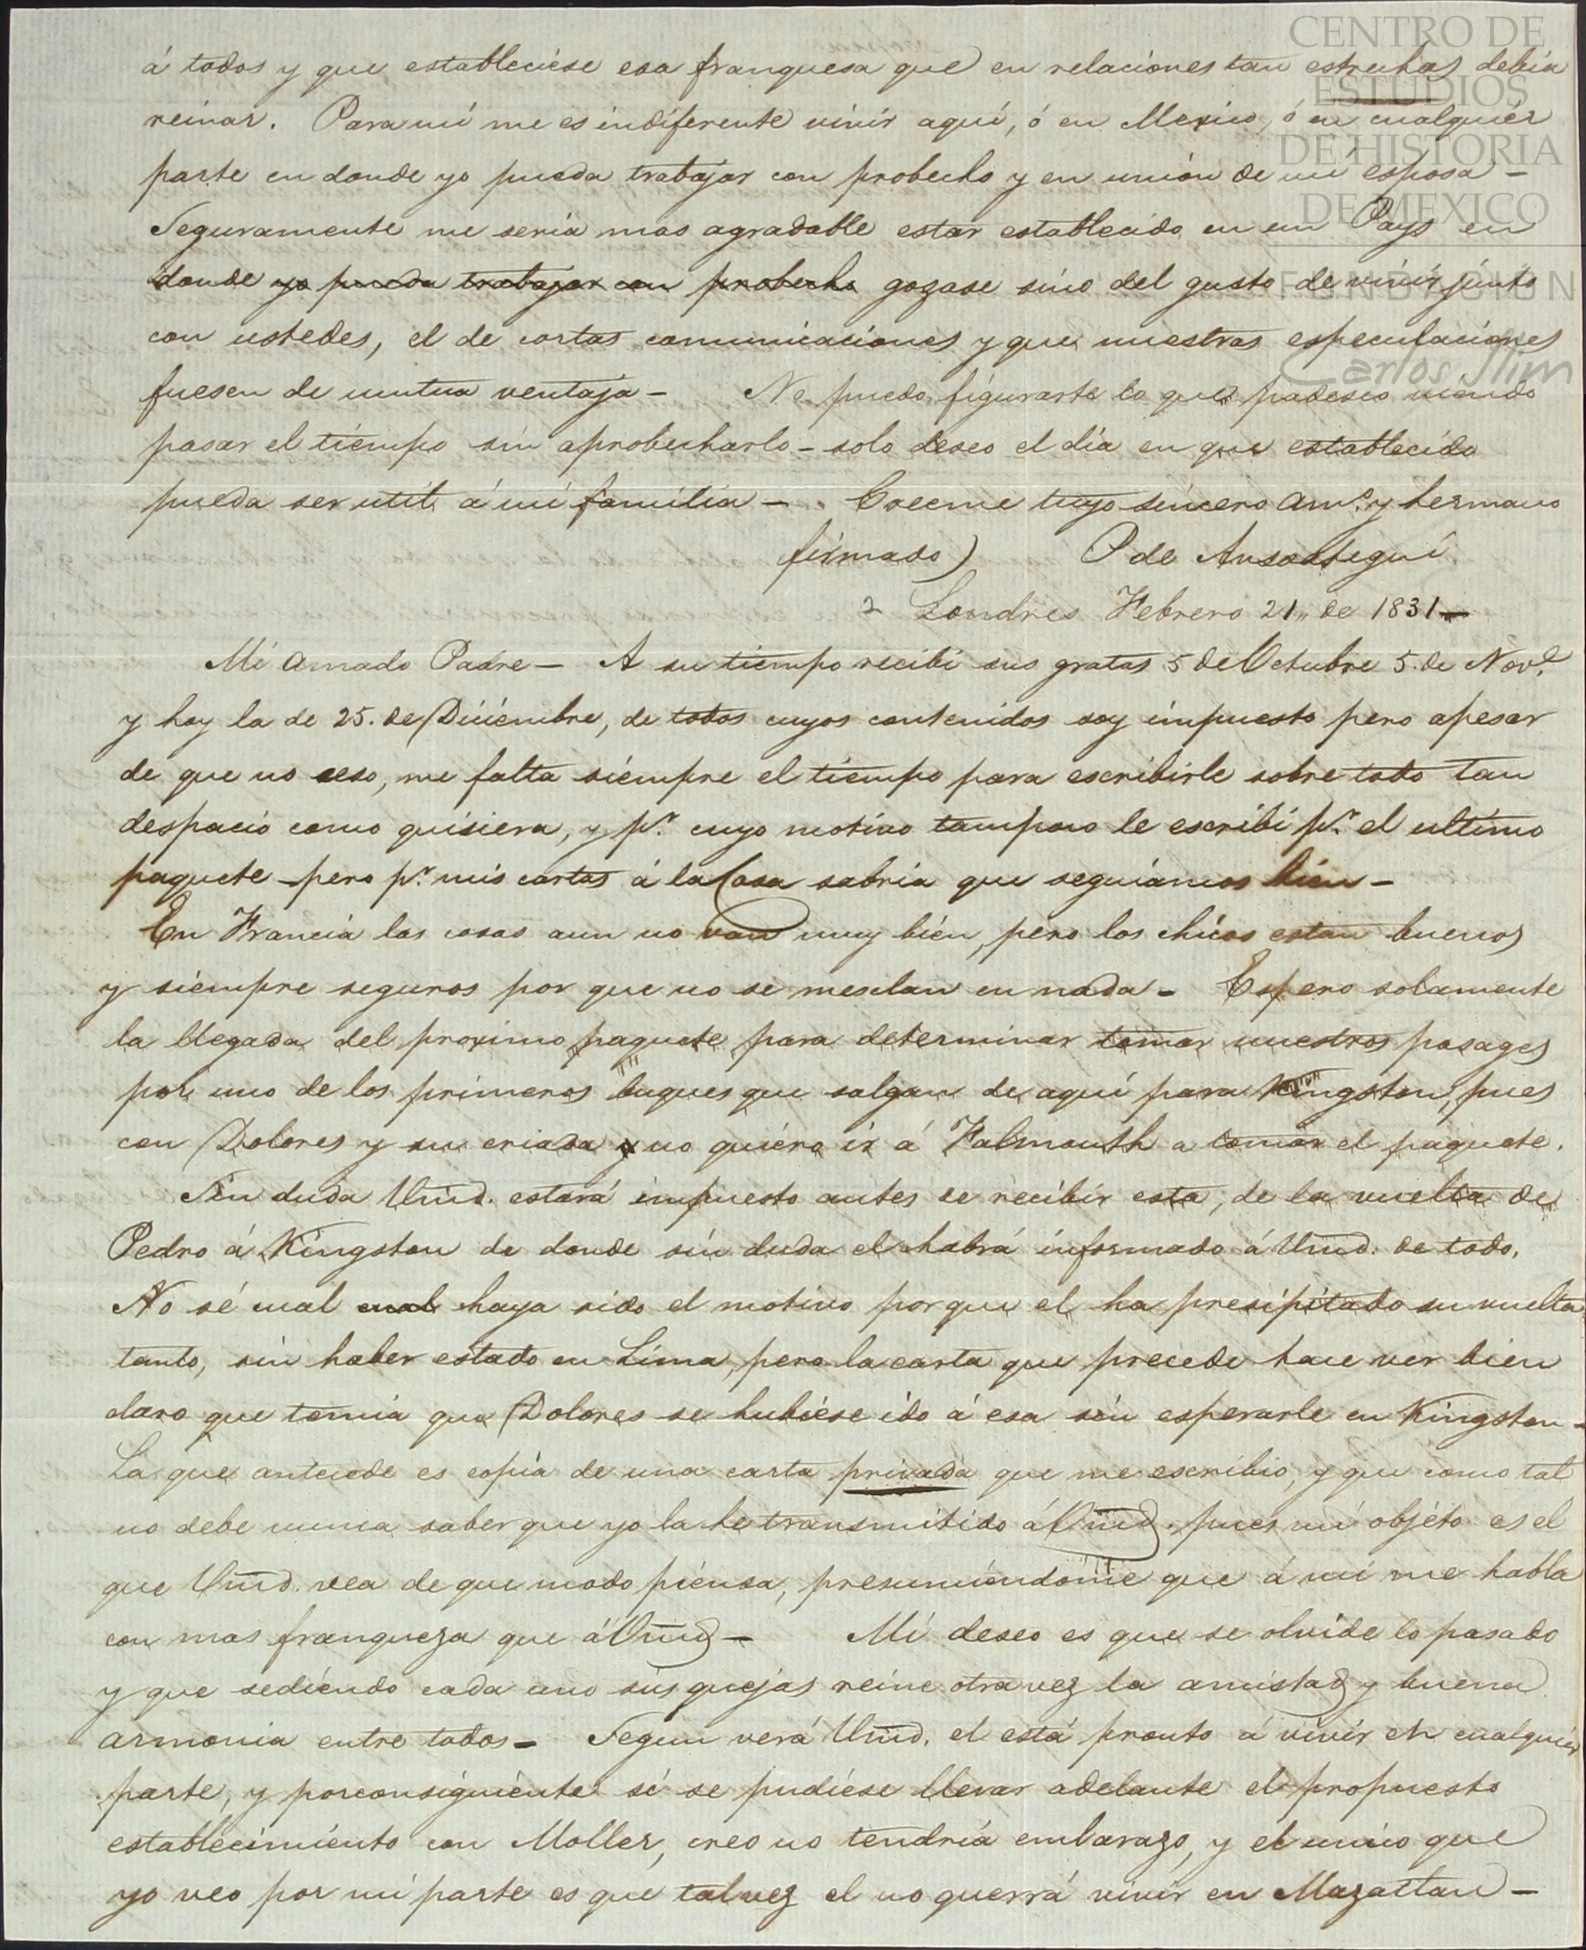 á todos y que estableciése esa franquesa que en relaciones tan estrechas debia
reinar. Para mí me es indiferente vivir aquí, ó en Mexico, ó en cualquiér
parte en donde yo pueda trabajar con probecho y en unión de mi esposa –
Seguramente me seria mas agradable estar establecido en un Pays en
donde yo pueda trabajar con probecho gozase sino del gusto de vivir junto
con ustedes, el de cortas comunicaciones y que nuestras especulaciones
fuesen de mutua ventaja – No puedo figurarte lo que padesco viendo
pasar el tiempo sin aprobecharlo – solo deseo el día en que establecido
pueda ser util á mi familia – Creeme tuyo sincero amo. y hermano
firmado) P de Ansoategui
2 Londres Febrero 21,, de 1831 –
Mi amado Padre – A su tiempo recibi sus gratas 5 de Octubre 5. de Nove.
y hoy la de 25. de Diciémbre, de todos cuyos contenidos soy impuesto pero apesar
de que no seso, me falta siémpre el tiempo para escribirle sobre todo tan
despacio como quisiera, y pr. cuyo motivo tampoco le escribí pr. el ultimo
paquete – pero pr. mis cartas á la Casa sabria que seguiámos bién –
En Francia las cosas aun no van muy bién, pero los chicos estan buenos
y siémpre seguros por que no se mesclan en nada – Espero solamente
la llegada del proximo paquete para determinar tomar nuestros pasages
por uno de los primeros buques que salgan de aquí para Kingston, pues
con Dolores y su criada y no quiéro ir á Falmouth a tomar el paquete.
Sin duda Vmd. estará impuesto antes de recibir esta, de la vuelta de
Pedro á Kingston de donde sin duda el habrá informado á Vmd. de todo.
No sé cual cual haya sido el motivo por que el ha presipitado su vuelta
tanto, sin haber estado en Lima, pero la carta que precede hace ver bien
claro que temia que Dolores se hubiése ido á esa sin esperarle en Kingston –
La que antecede es copia de una carta privada que me escribio, y que como tal
no debe nunca saber que yo la he transmitido á Vmd. pues mi objéto es el
que Vmd. vea de que modo piénsa, presumiéndome que á mi me habla
con mas franqueza que á Vmd – Mi deseo es que se olvide lo pasado
y que sediéndo cada uno sus quejas reine otra vez la amistad y buena
armonia entre todos – Segun verá Vmd. el está pronto á vivir en cualquiér
parte, y porconsiguiénte si se pudiése llevar adelante el propuesto
establecimiénto con Moller, creo no tendria embarazo, y el unico que
yo veo por mi parte es que talvez el no querrá vivir en Mazatlan –
CENTRO DE
ESTUDIOS
DE HISTORIA
DE MEXICO
FUNDACIÓN
Carlos Slim